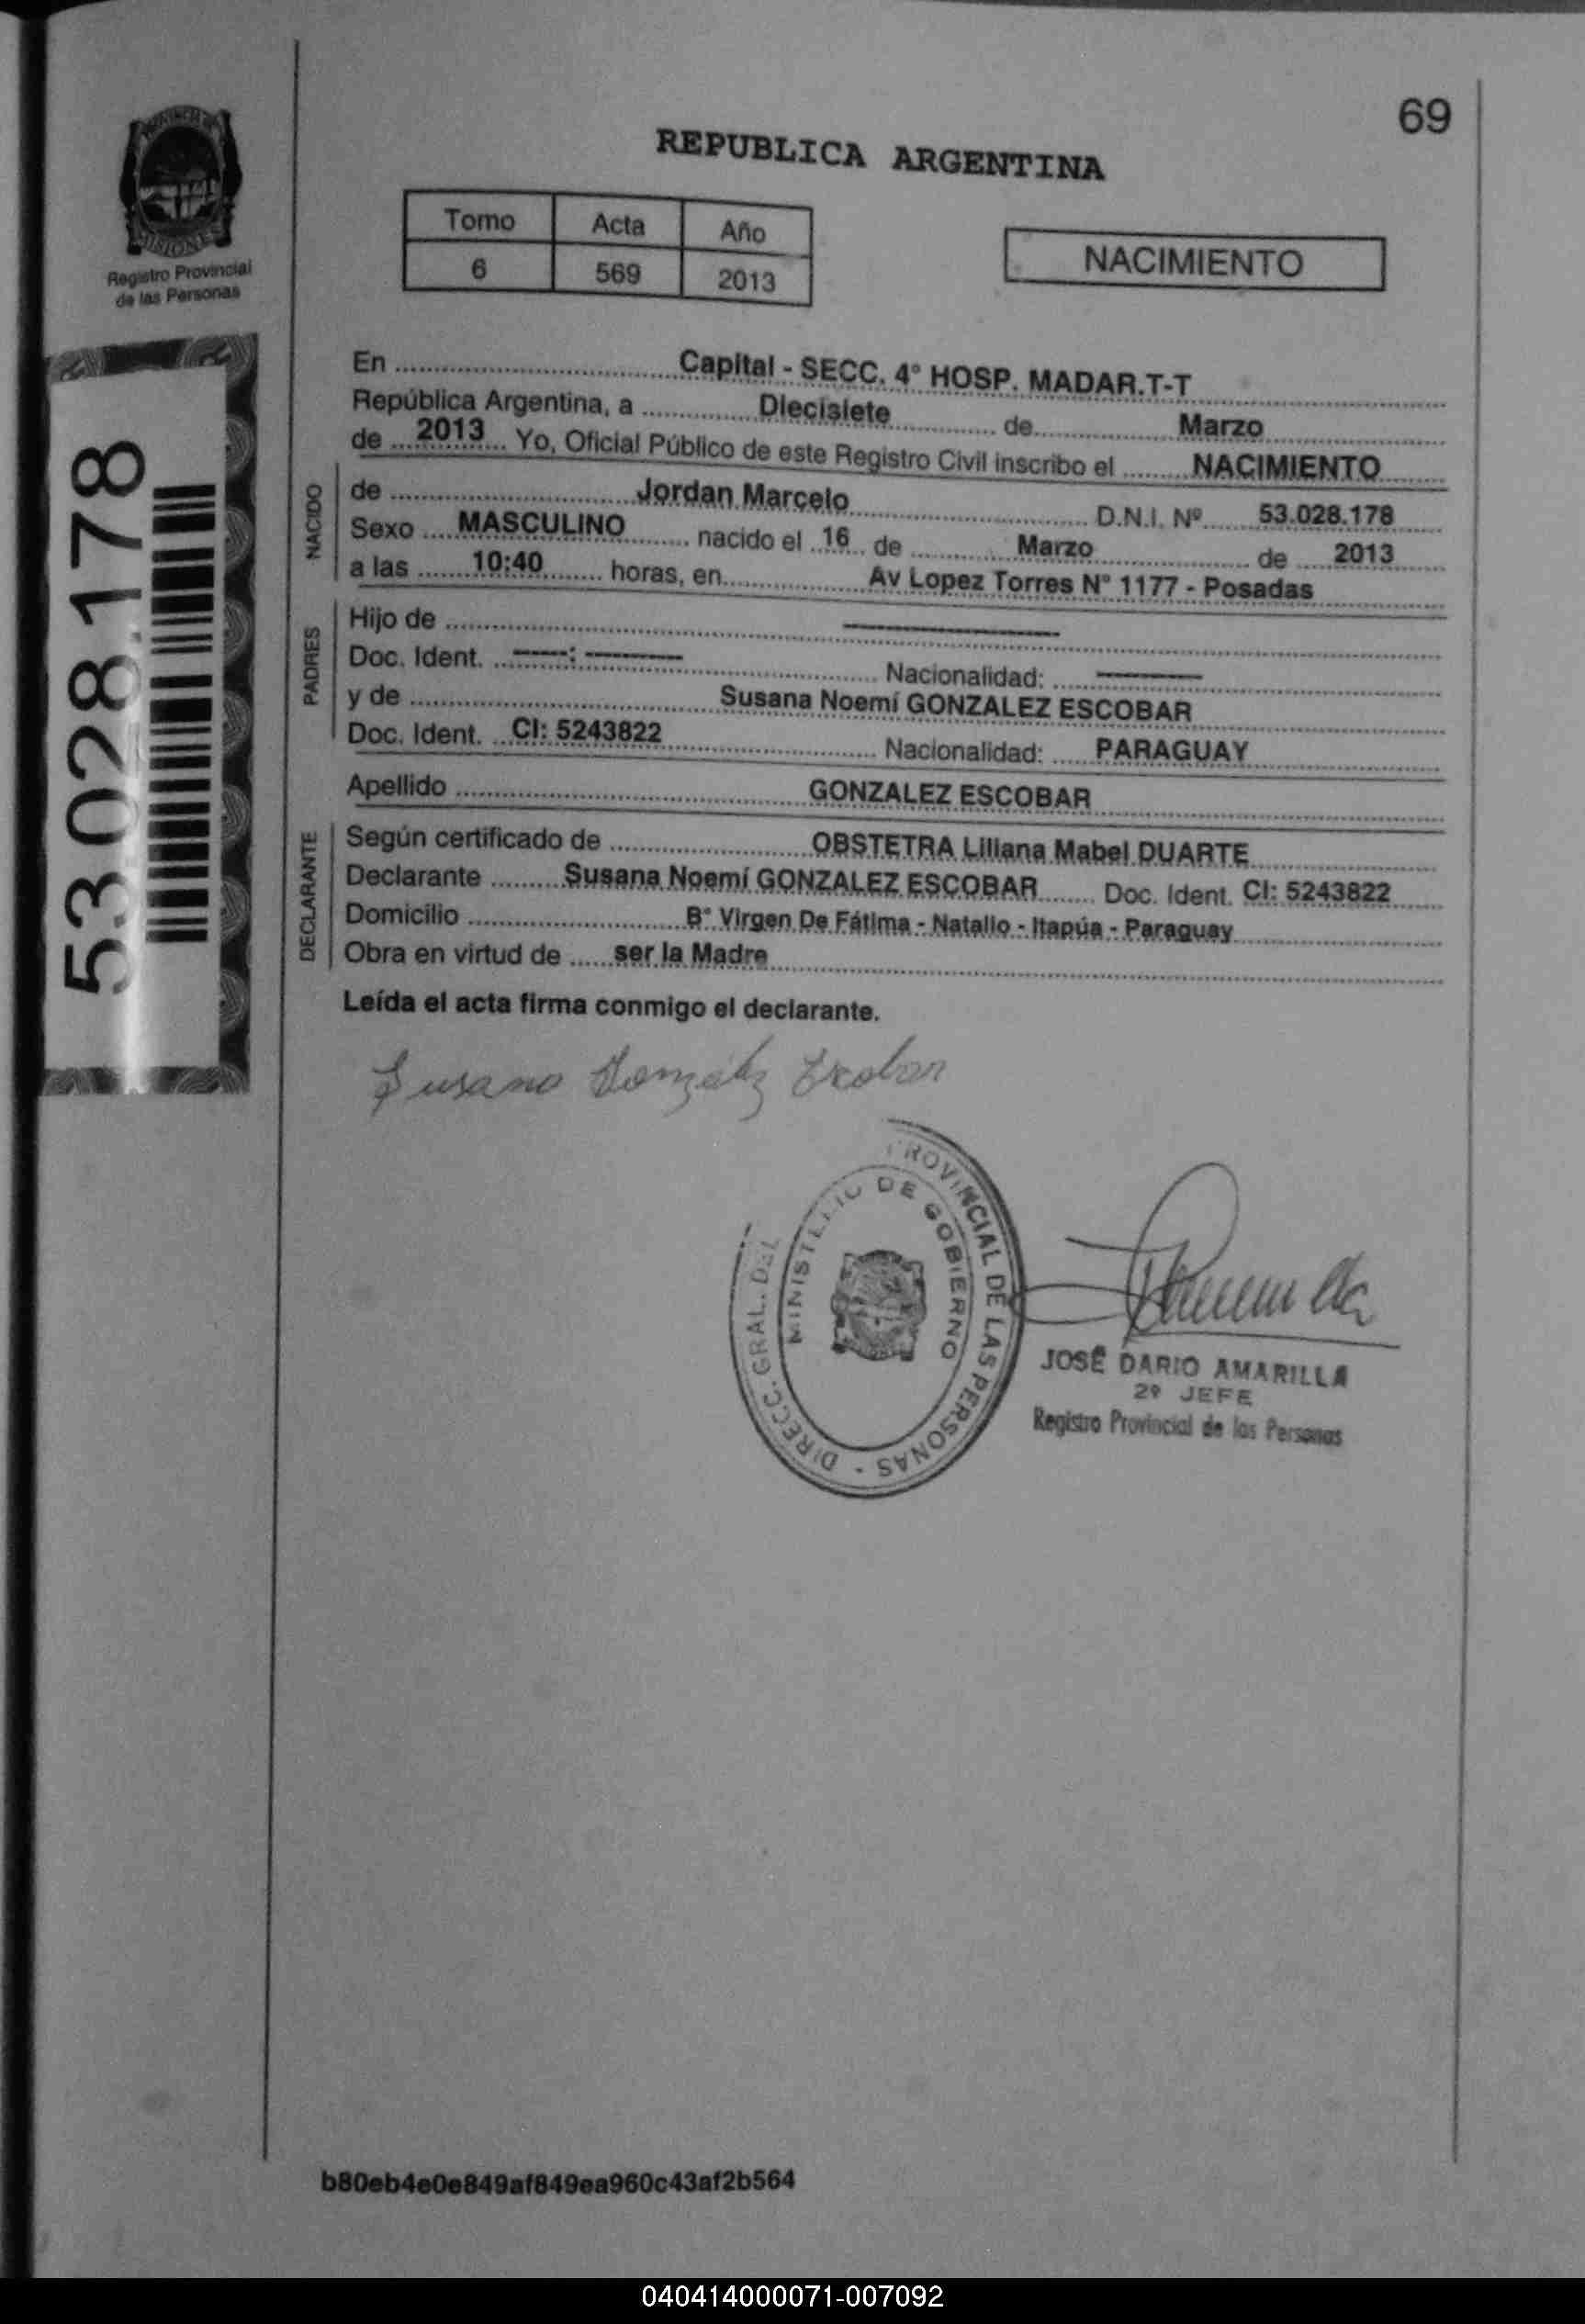 69
PROVINCIA DE
MISIONES
Registro Provincial
de las Personas
53.028.178
REPUBLICA ARGENTINA
Tomo Acta Año
6 569 2013
NACIMIENTO
En Capital - SECC. 4° HOSP. MADAR.T-T
República Argentina, a Diecisiete de Marzo
de 2013 Yo, Oficial Público de este Registro Civil inscribo el NACIMIENTO
NACIDO
de Jordan Marcelo D.N.I. Nº 53.028.178
Sexo MASCULINO nacido el 16 de Marzo de 2013
a las 10:40 horas, en Av Lopez Torres N° 1177 - Posadas
PADRES
Hijo de ----------
Doc. Ident. -----: --------- Nacionalidad: ----------
y de Susana Noemí GONZALEZ ESCOBAR
Doc. Ident. CI: 5243822 Nacionalidad: PARAGUAY
Apellido GONZALEZ ESCOBAR
DECLARANTE
Según certificado de OBSTETRA Liliana Mabel DUARTE
Declarante Susana Noemí GONZALEZ ESCOBAR Doc. Ident. CI: 5243822
Domicilio B° Virgen De Fátima - Natalio - Itapúa - Paraguay
Obra en virtud de ser la Madre
Leída el acta firma conmigo el declarante.
Susana Gonzalez Escobar
DIRECC. GRAL. DEL PROVINCIAL DE LAS PERSONAS -
MINISTERIO DE GOBIERNO
JOSÉ DARIO AMARILLA
2º JEFE
Registro Provincial de las Personas
b80eb4e0e849af849ea960c43af2b564
040414000071-007092